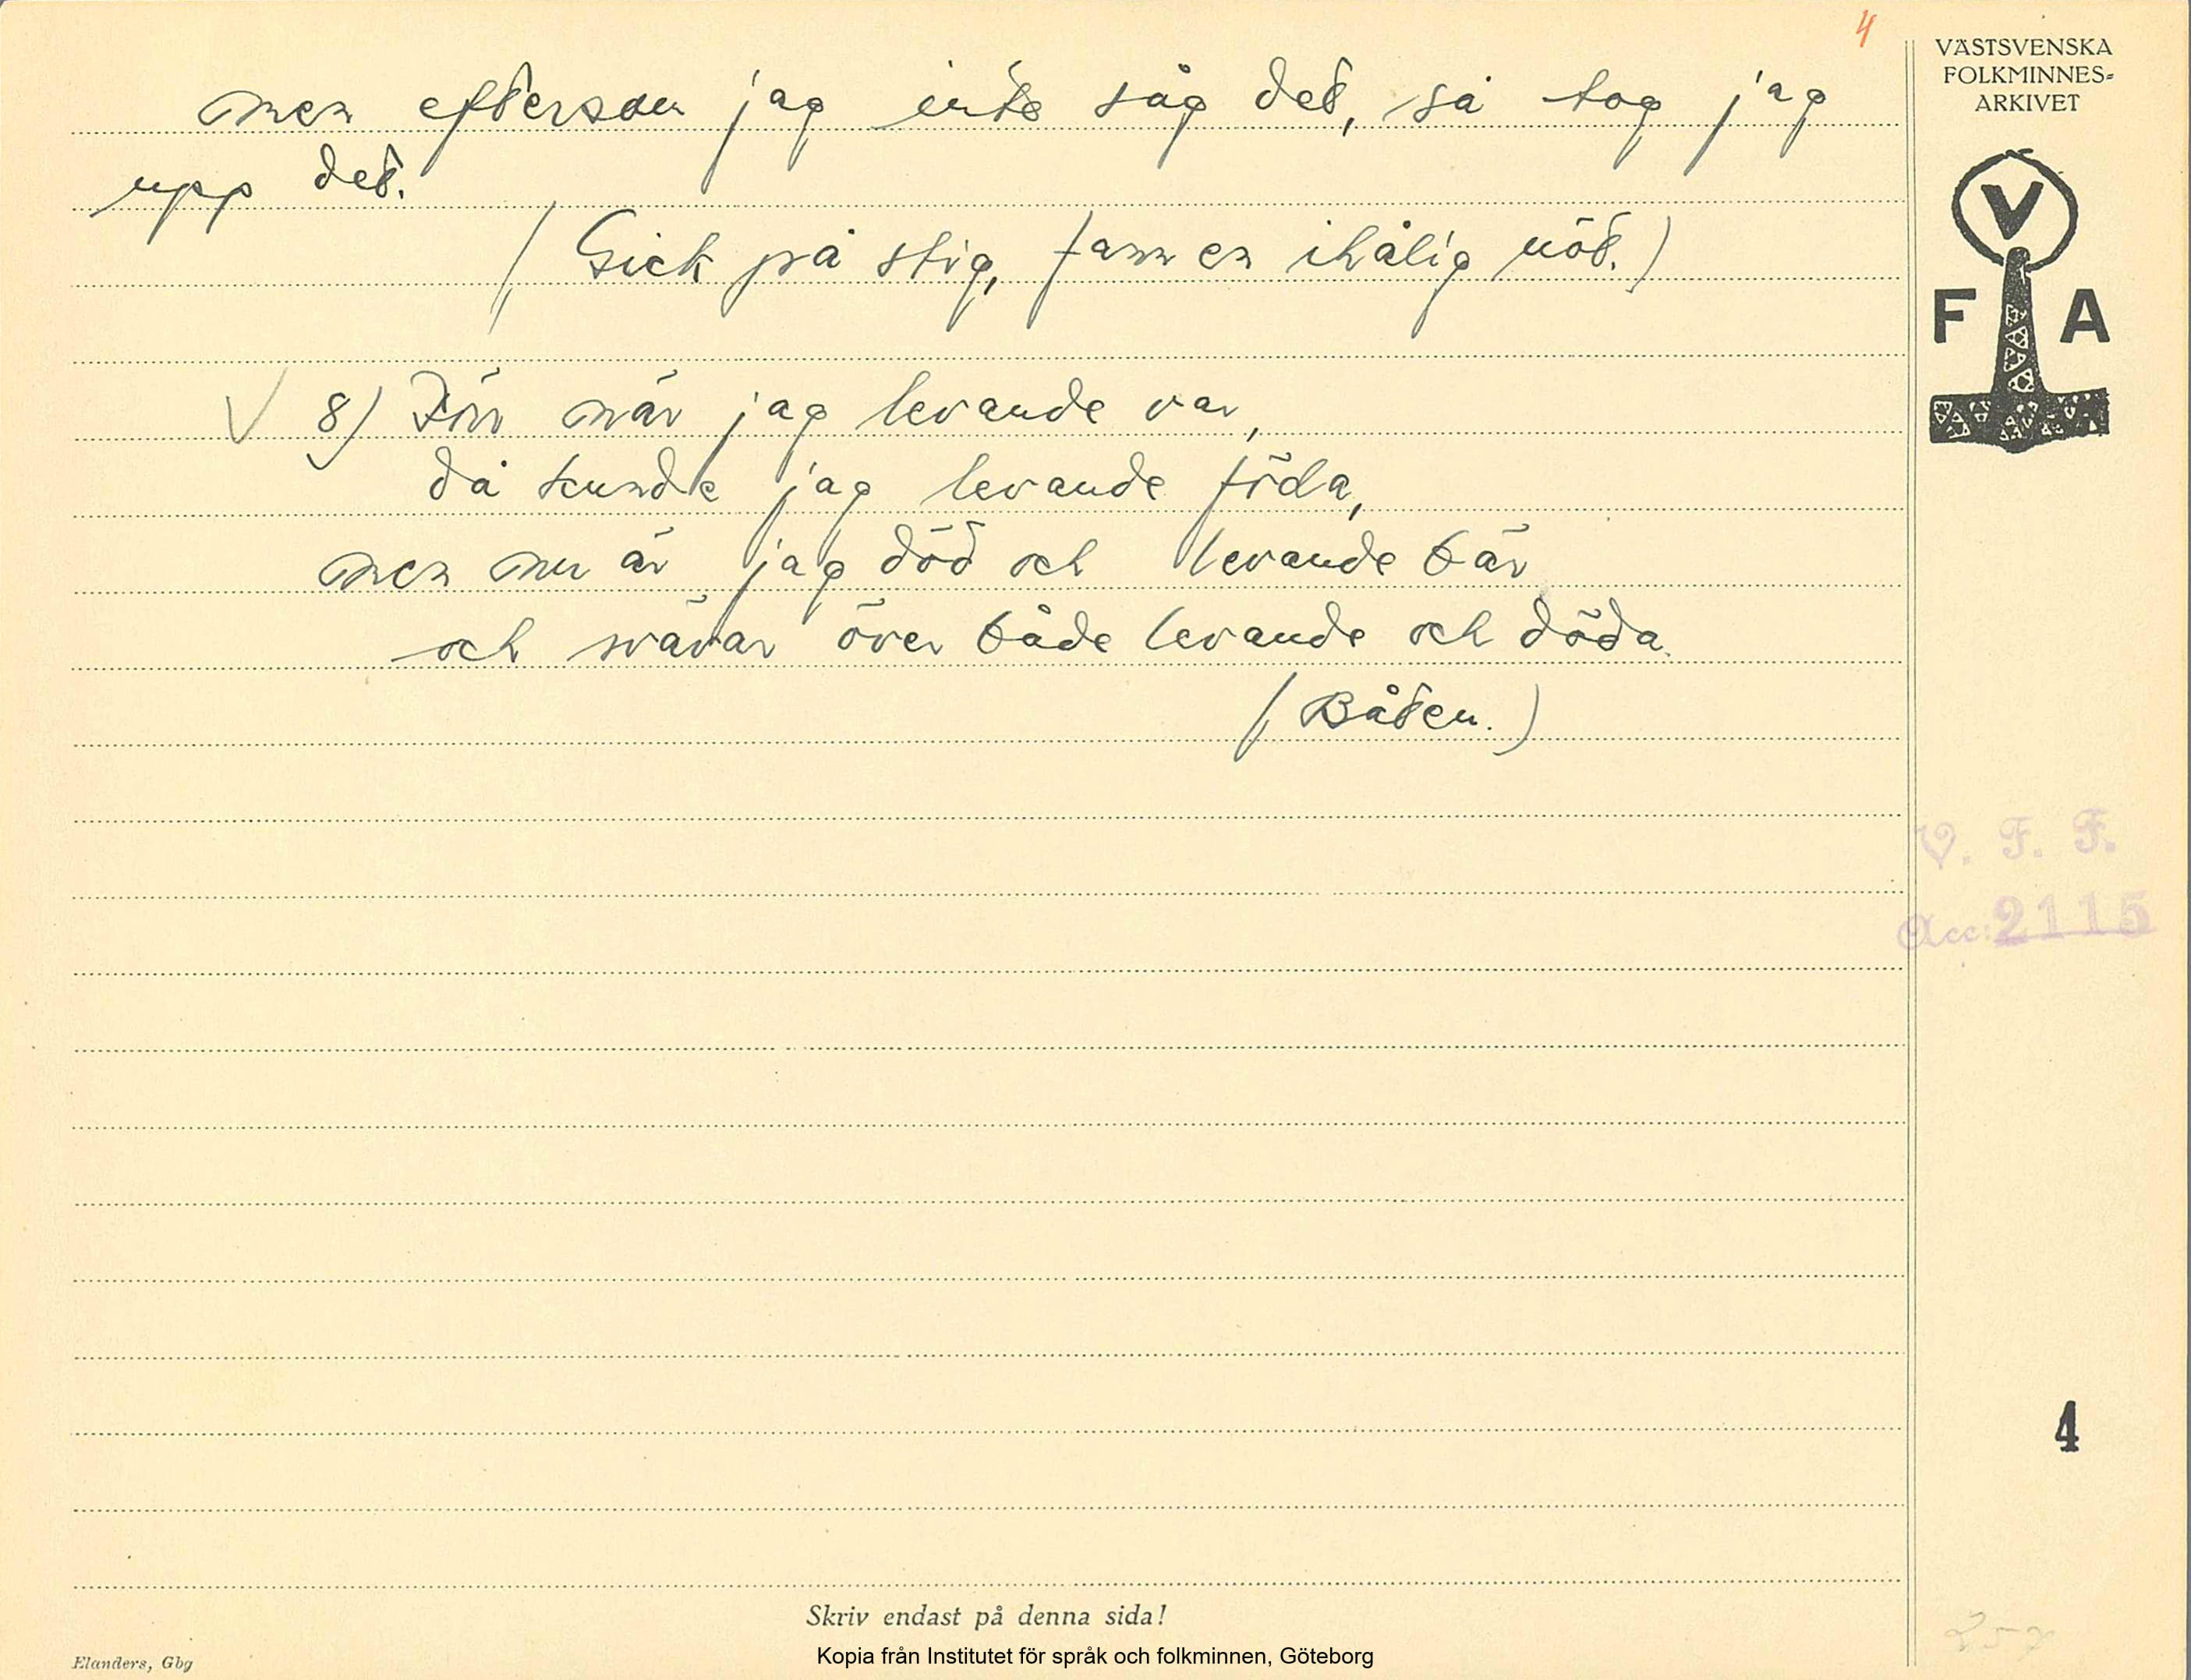 4
men eftersom jag inte såg det, så tog jag
upp det.
(Gick på stig, fann en ihålig nöt.)
8) Förr när jag levande var,
då kunde jag levande föda,
men nu är jag död och levande bär
och svävar över både levande och döda.
(Båten.)
VÄSTSVENSKA
FOLKMINNES-
ARKIVET
V
F A
V. F. F.
Acc: 2115
4
257
Skriv endast på denna sida!
Kopia från Institutet för språk och folkminnen, Göteborg
Elanders, Gbg